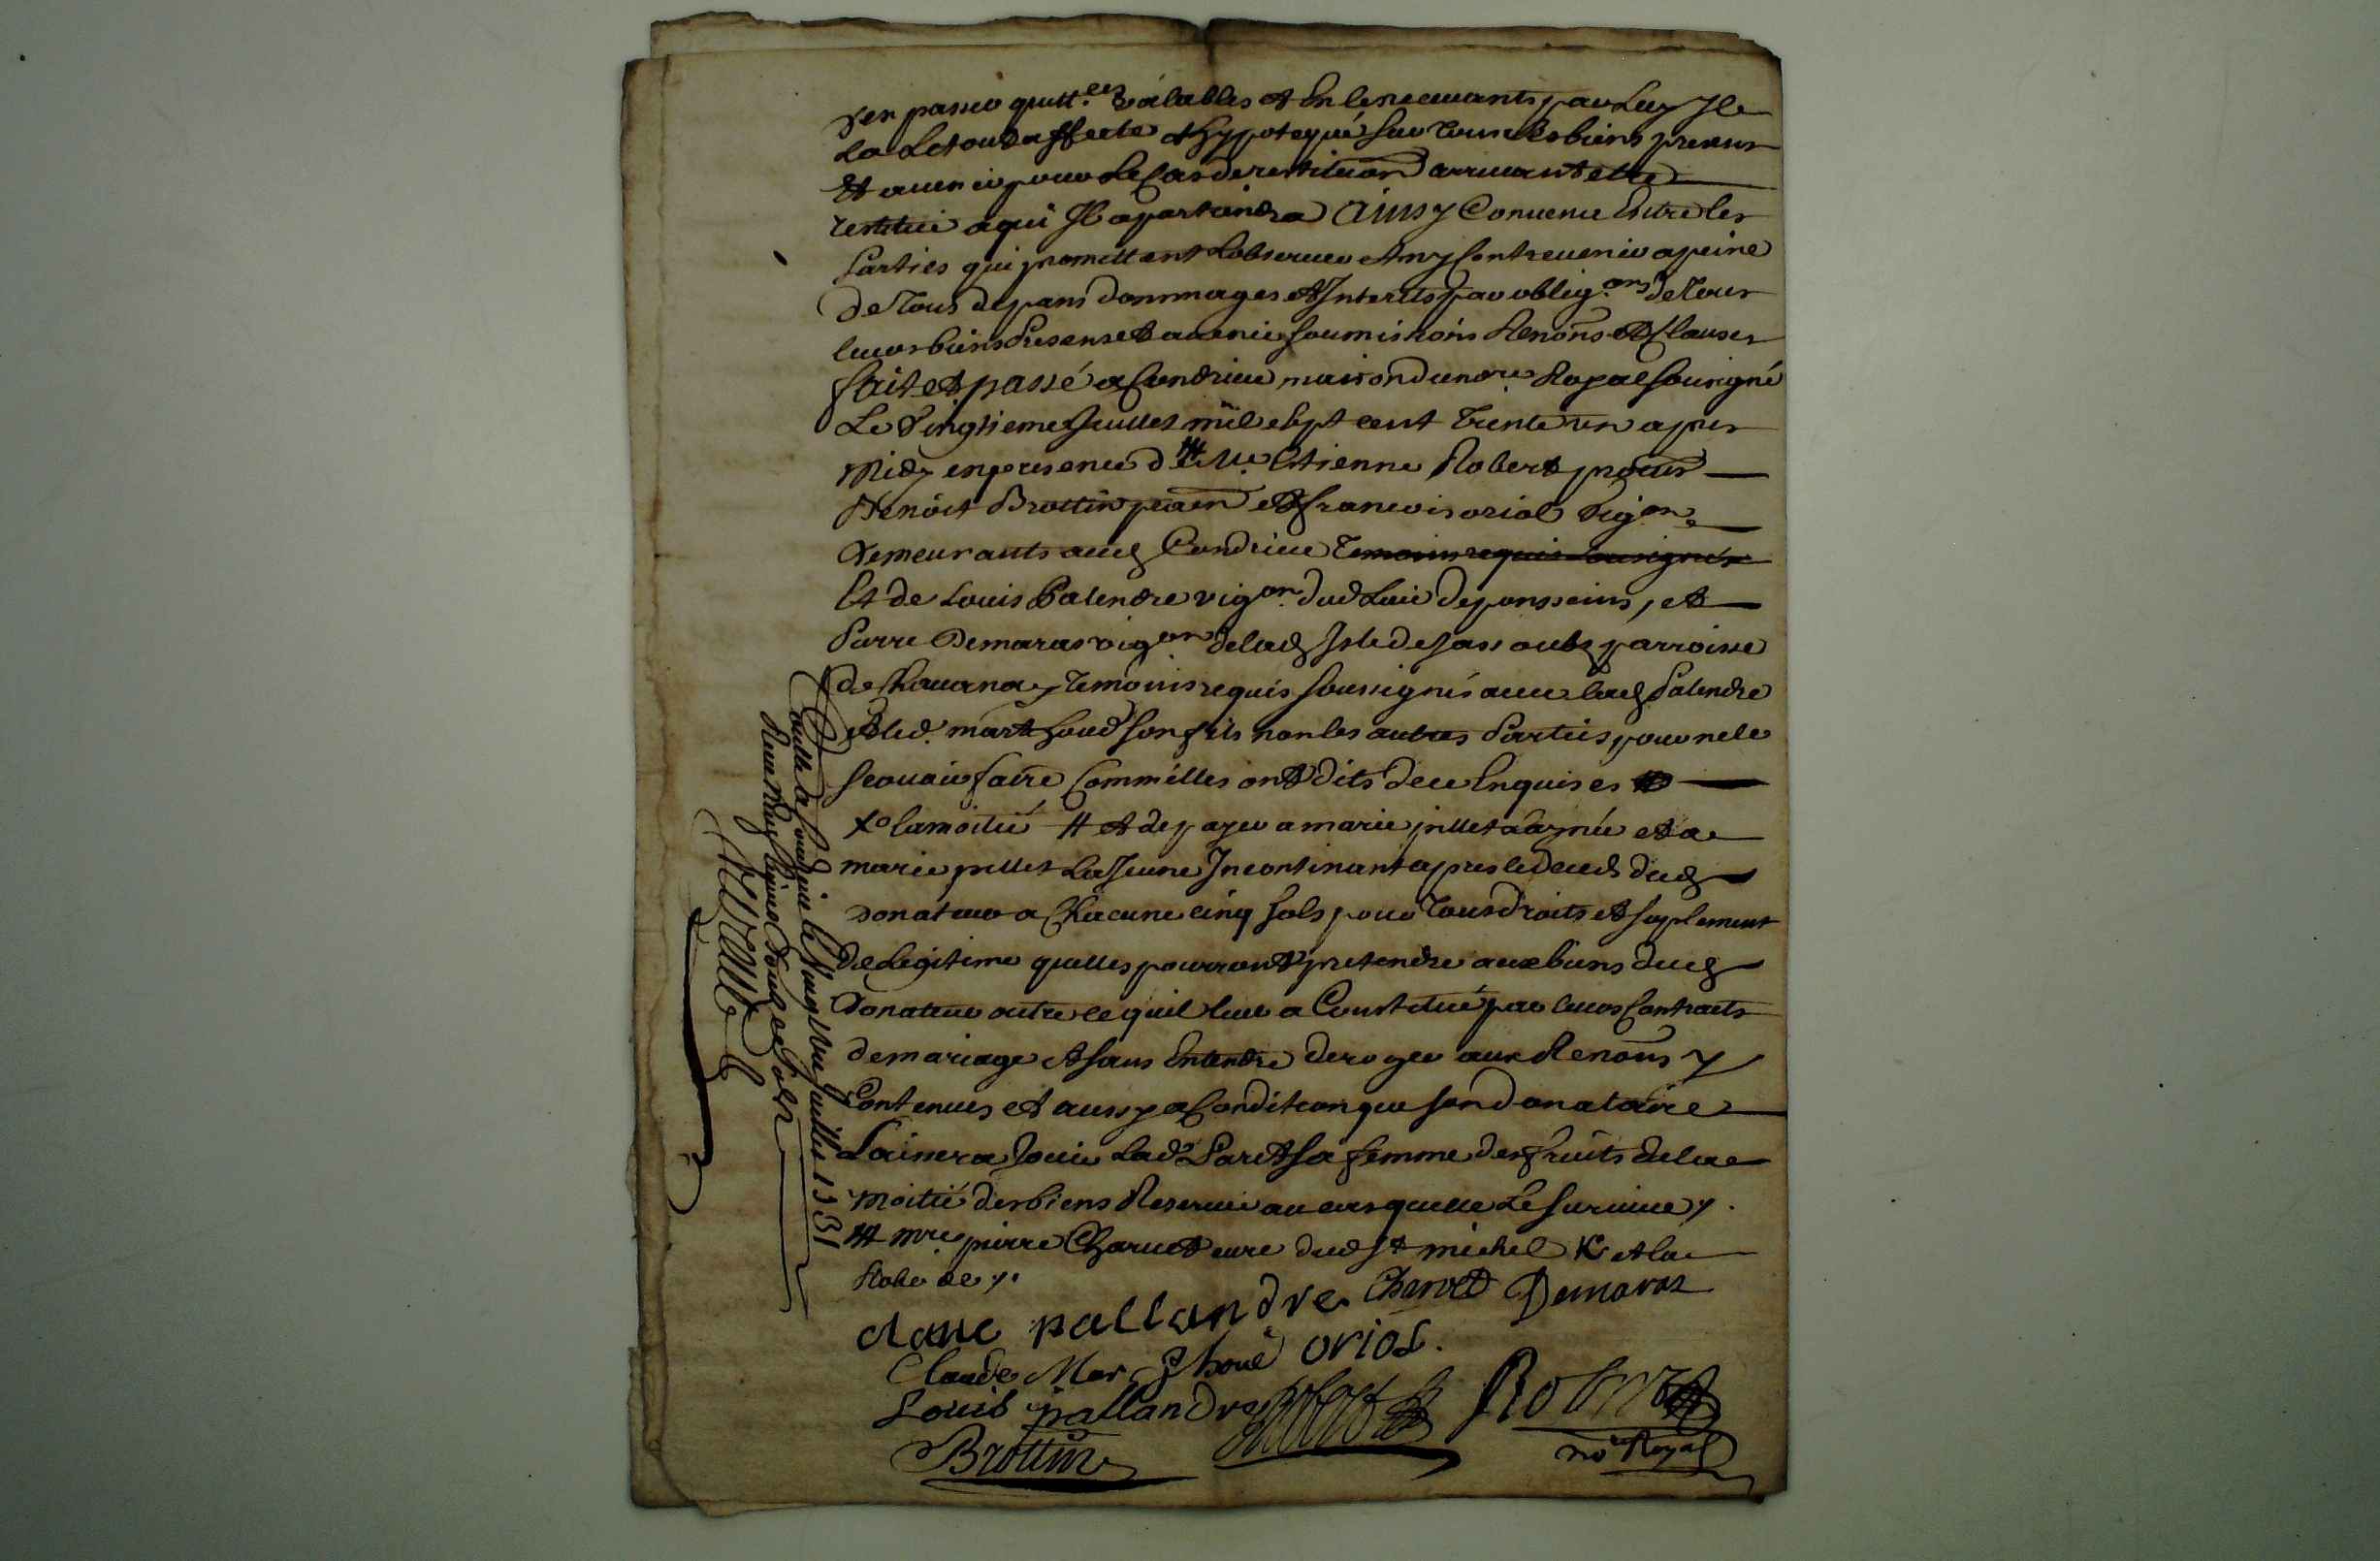 d'en passer quitt.ces valables et En le recevants par Luy Il
La Letout affecté et hypotequé sur Tous ses biens presens
Et avenir pour Le Cas de restitu͠on arrivant etre
restitué a qui Il apartiendra Ainsy Convenu Entre les
Parties qui promettent Lobserver et ny Contrevenir a peine
de Tous depans dommages et Interets par oblig.ons de Tous
leurs biens Presens et avenir soumissions Renons et Clauses
fait et passé a Condrieu maison du no.re Royal sousigné
Le Vingtieme Juillet mil sept cent Trente un apres
Midy en presence d # Me. Estienne Robert procur
Benoist Brottin et francois oriol Vig.on
demeurants aud Condrieu Temoins requis sousignés
Et de Louis Palendre vig.on dud Lieu de ponssins, et
Pierre Demaras vig.on de lad Isle de parroisse
de Chavanay Temoins requis soussignés avec led Palendre
et led. marthoud son fils non les autres Parties pour ne le
scavoir faire Comm'elles ont dits de ce Enquises
xo la moitié # et de payer a marie pillet laynée et a
marie pillet La Jeune Incontinant apres le deced dud
donateur a Chacune cinq sols pour Tous droits et suplement
de Legitime quelles pourront pretendre aux biens dud
Donateur outre ce quil leur a Constitué par leurs Contraits
de mariage et sans Entendre deroger aux Renons y
Contenues et aussy a Condition que son donataire
Laissera Jouir Lad Paret sa femme des fruits de la
moitié des biens Reservé au cas quelle Le survive y.
## mre. pierre Charvet cure dud st michel K et la
Robe de y.
clauc pallandre Charvet Demaras
Claude Mar thoué oriol.
Louis pallandre Robert Robert
Brottin no.re Royal
Conttrollé a Condrieu le Vingt Un Juillet 1731
Receu